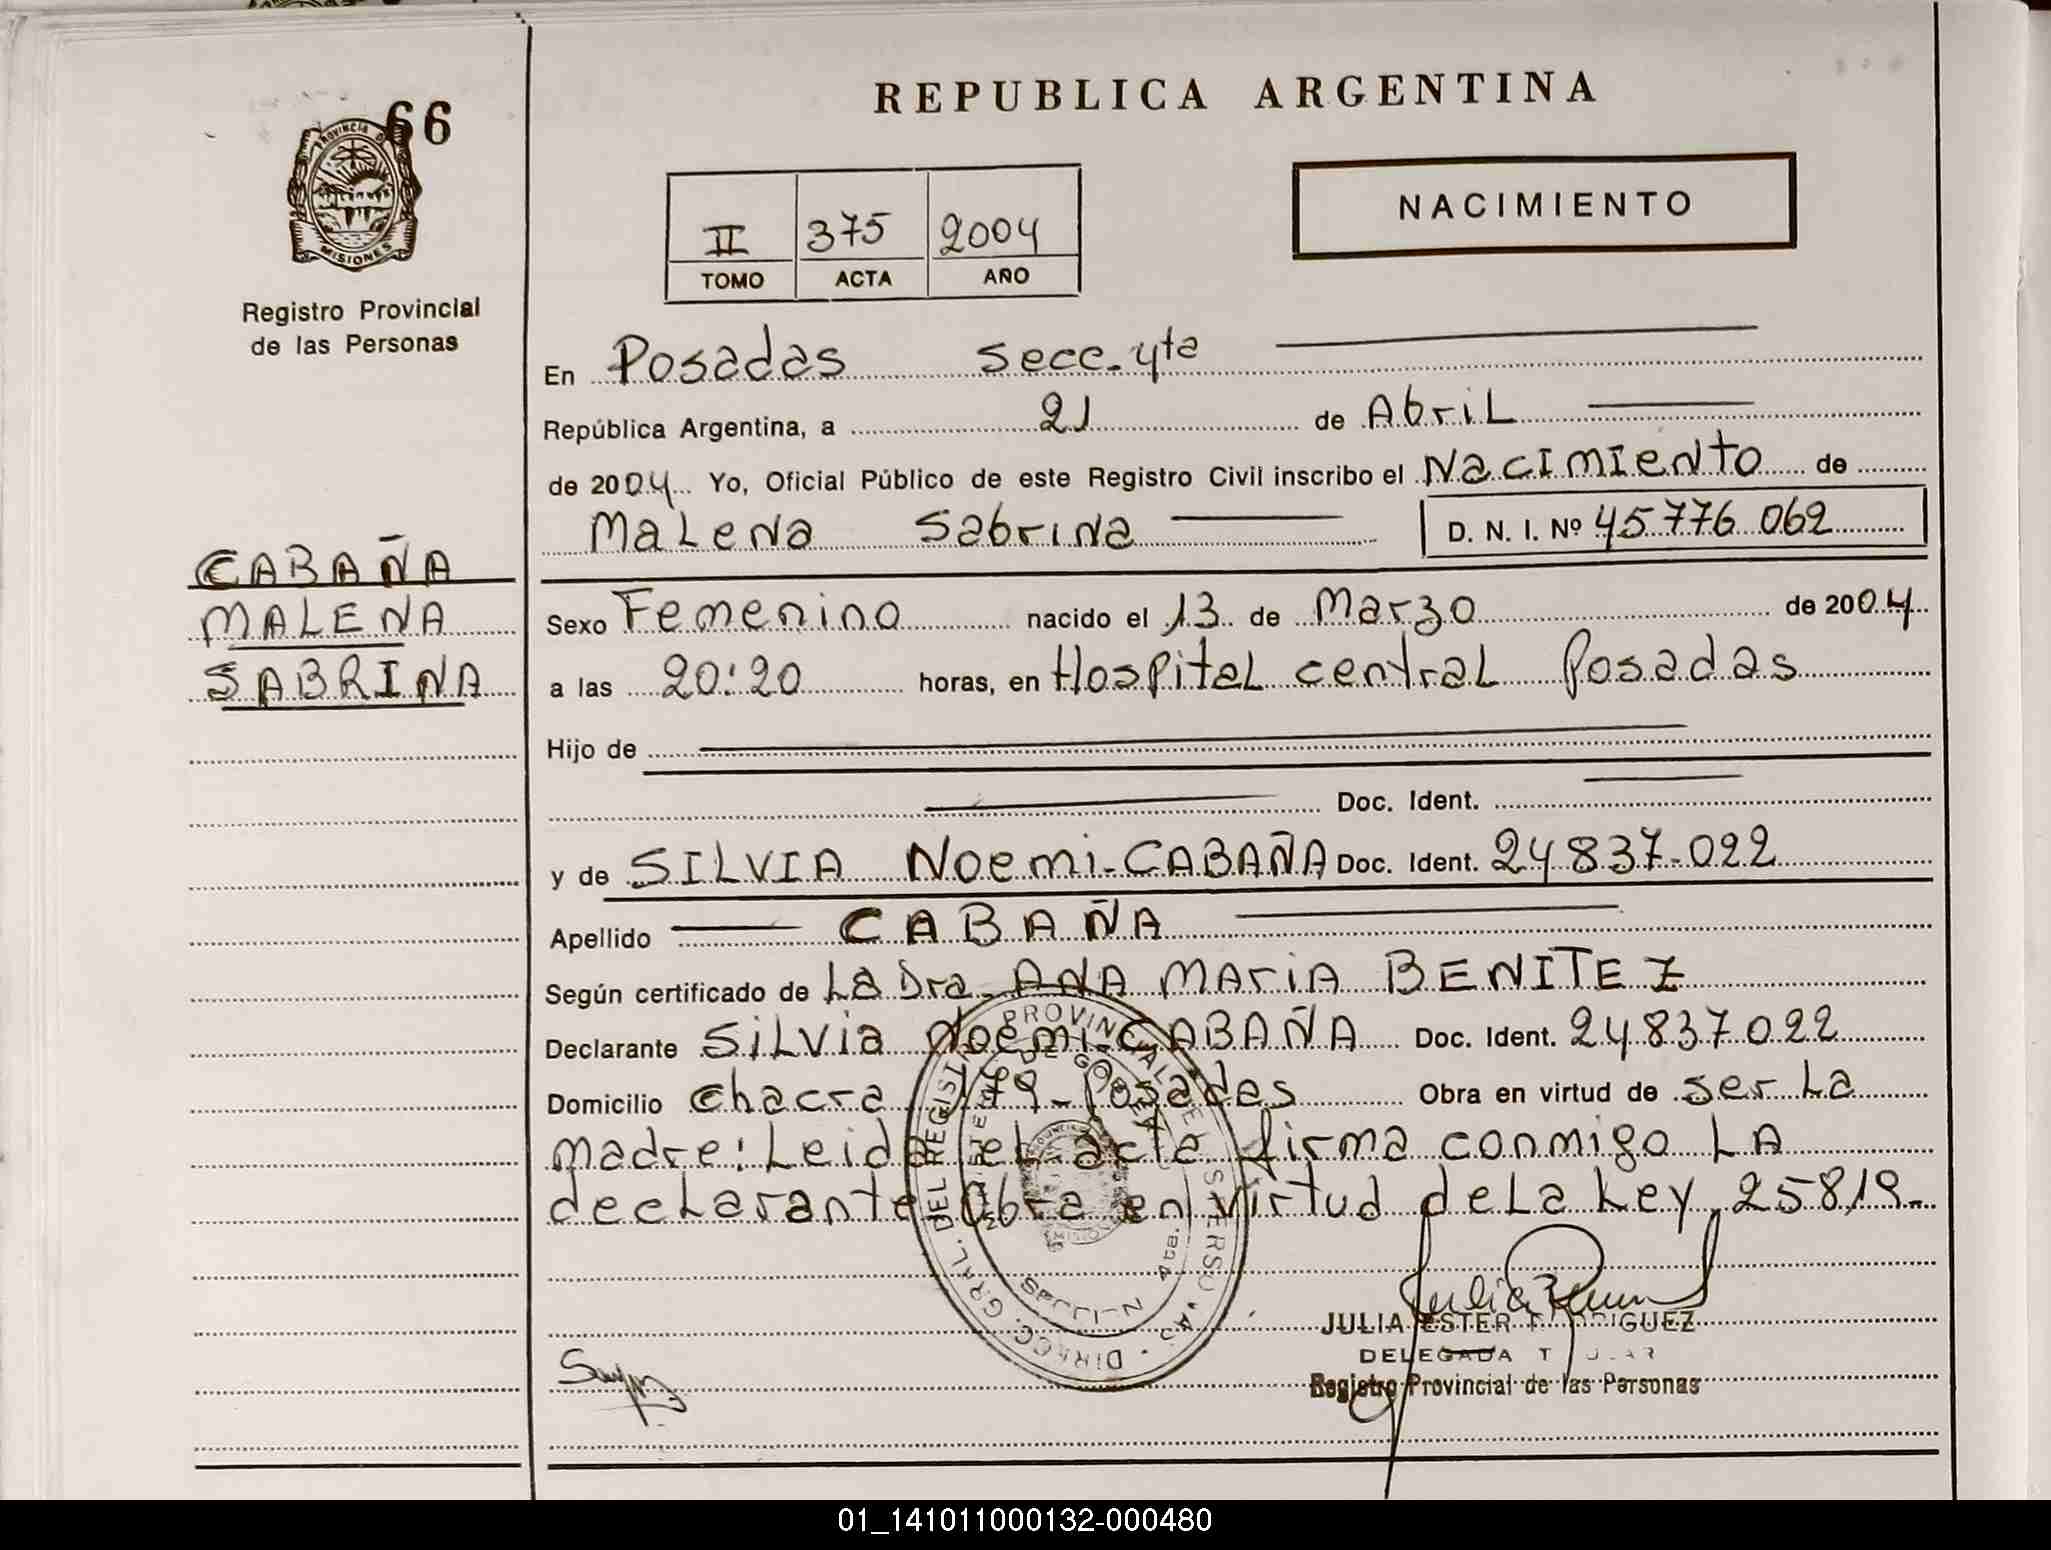 REPUBLICA ARGENTINA
66
PROVINCIA DE
MISIONES
Registro Provincial
de las Personas
NACIMIENTO
II 375 2004
TOMO ACTA AÑO
En Posadas Secc. 4ta
República Argentina, a 21 de Abril
de 2004 Yo, Oficial Público de este Registro Civil inscribo el Nacimiento de
Malena Sabrina D. N. I. Nº 45.776.062
CABAÑA
MALENA
SABRINA
Sexo Femenino nacido el 13 de Marzo de 2004
a las 20:20 horas, en Hospital central Posadas
Hijo de
Doc. Ident.
y de SILVIA Noemi-CABAÑA Doc. Ident. 24837-022
Apellido CABAÑA
Según certificado de La Dra. ANA MARIA BENITEZ
Declarante Silvia Noemi-CABAÑA Doc. Ident. 24837022
Domicilio chacra 179-Posadas Obra en virtud de ser La
madre: Leida el acta firma conmigo LA
declarante Obra en virtud de La Ley 25819-
JULIA ESTER RODRIGUEZ
DELEGADA TITULAR
Registro Provincial de las Personas
01_141011000132-000480